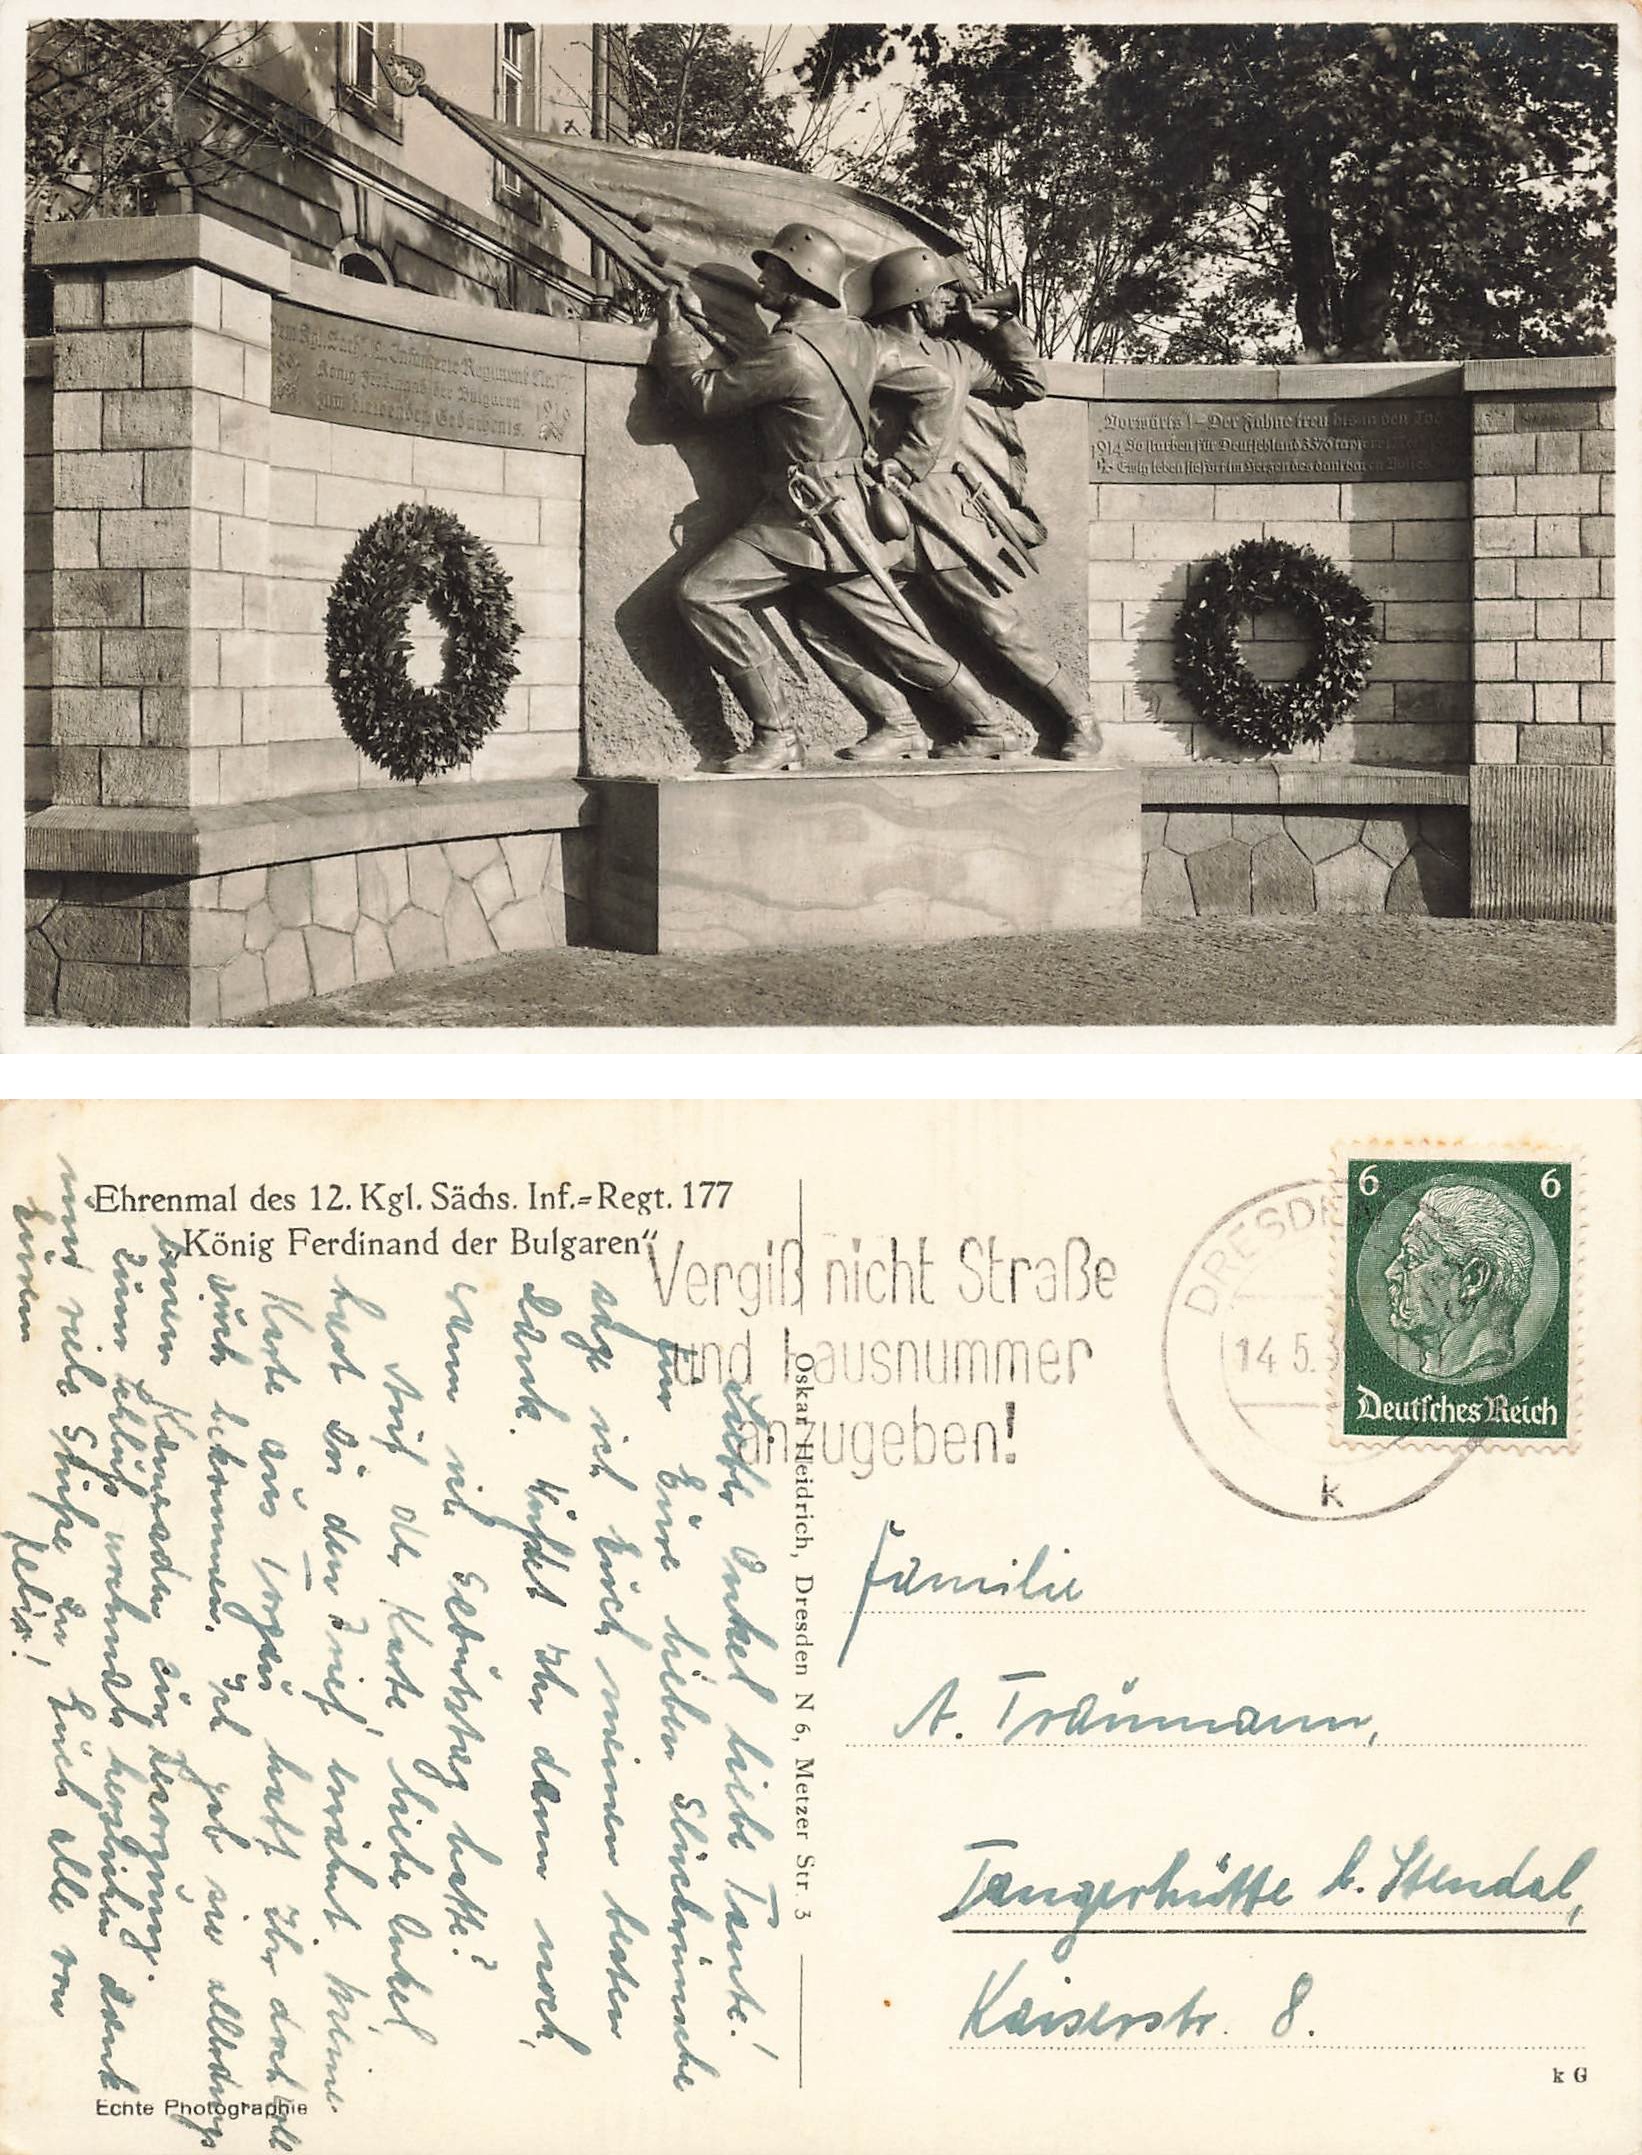 Dem Kgl. Sächs. 12. Infanterie Regiment Nr. 177
König Ferdinand der Bulgaren
zum bleibenden Gedächtnis.
„Vorwärts! – Der Fahne treu bis in den Tod
1914 So starben für Deutschland 3576 tapfere
Ewig leben sie fort im Herzen des dankbaren Volkes
Ehrenmal des 12. Kgl. Sächs. Inf.=Regt. 177
„König Ferdinand der Bulgaren“
Vergiß nicht Straße
und Hausnummer
anzugeben!
DRESDEN
14.5.3
k
6 6
Deutsches Reich
Oskar Heidrich, Dresden N 6, Metzer Str. 3
Lieber Onkel liebe Tante!
Für Eure lieben Glückwünsche
sage ich Euch meinen besten
Dank. Wußtet Ihr denn noch,
wann ich Geburtstag hatte?
Auf der Karte, lieber Onkel
hast Du den Brief erwähnt. Meine
Karte aus habt Ihr doch
auch bekommen. Ich gab sie allerdings
einem Kameraden zur Besorgung.
Zum Schluß nochmals herzlichen Dank
und viele Grüße an Euch alle von
Eurem Felix!
Familie
A. Traumann,
Tangerhütte b. Stendal,
Kaiserstr. 8.
Echte Photographie
k G